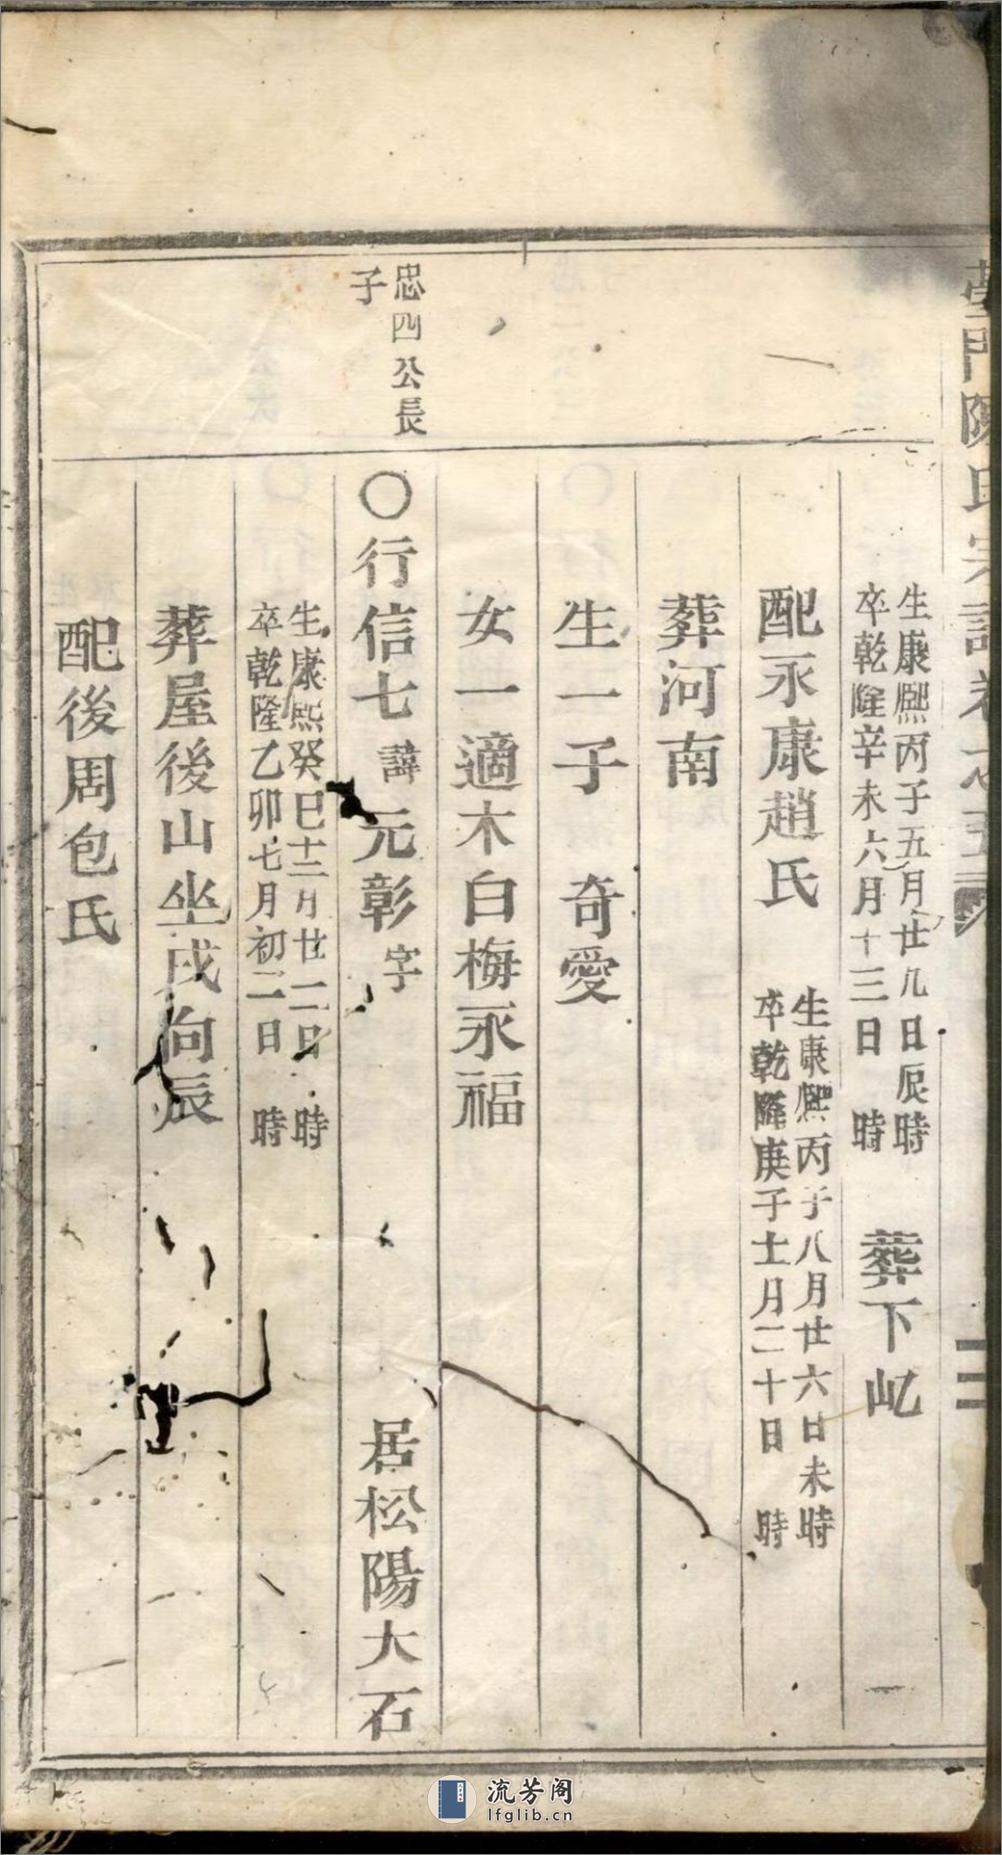 陳氏宗譜卷之
生康熙丙子五月廿九日辰時
卒乾隆辛未六月十三日 時
葬下屹
配永康趙氏
生康熙丙子八月廿六日未時
卒乾隆庚子十一月二十日 時
葬河南
生一子 奇愛
女一適木白梅永福
忠四公長
子
〇行信七諱元彰字 居松陽大石
生康熙癸巳十二月廿二日 時
卒乾隆乙卯七月初二日 時
葬屋後山坐戌向辰
配後周包氏
流芳阁
lfglib.cn